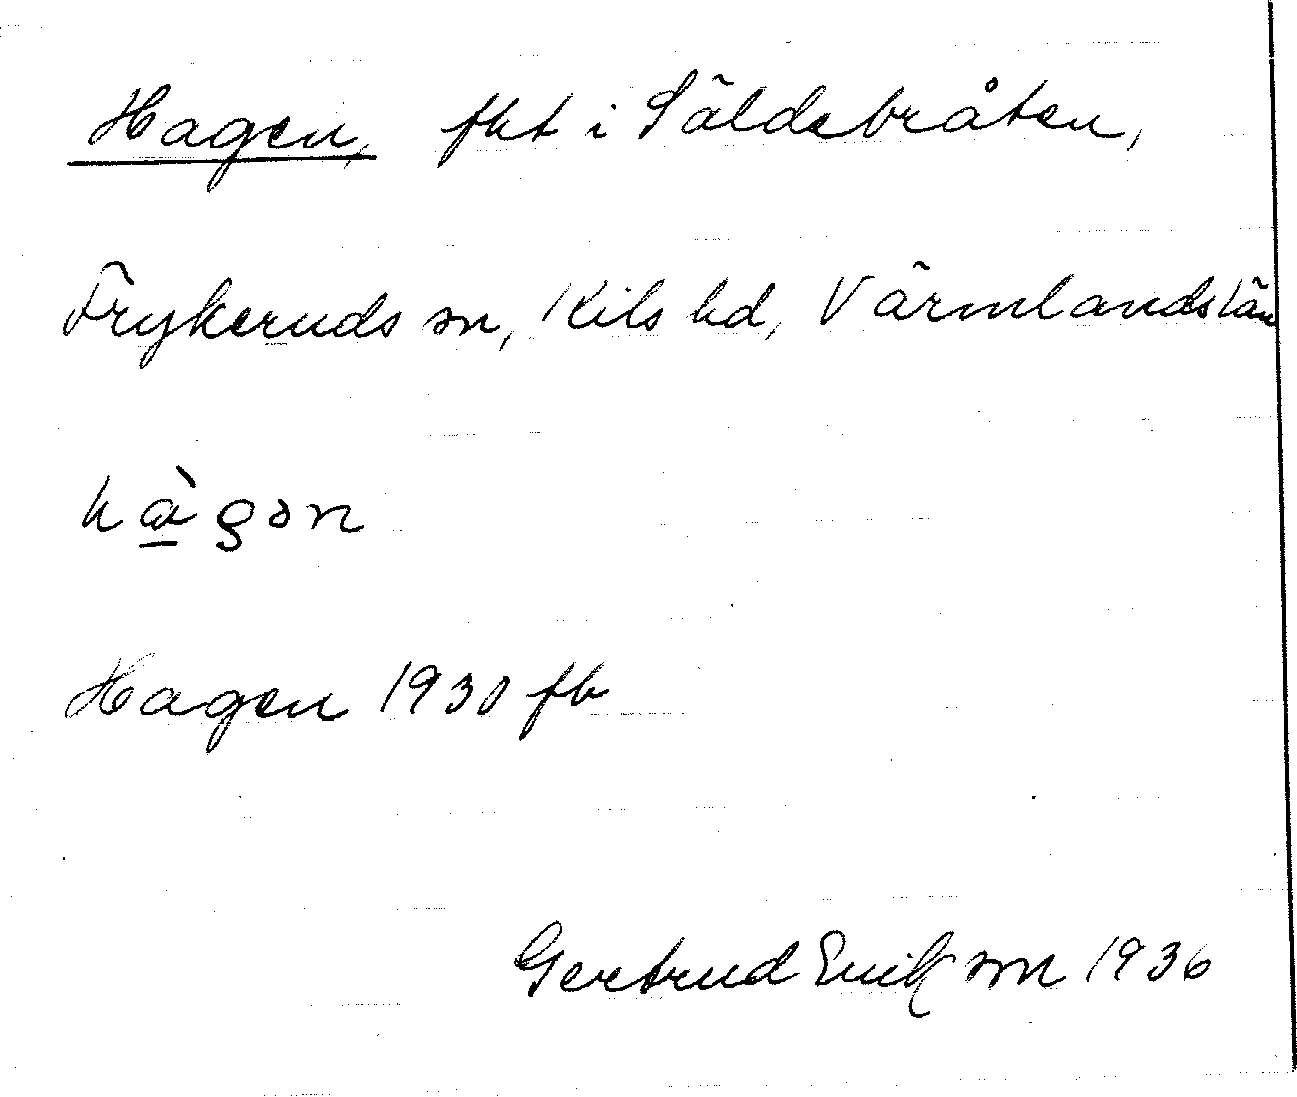 Hagen, fkt i Säldebråten,
Frykeruds sn, Kils hd, Värmlands län
hàgən
Hagen 1930 fb
Gertrud Eriksson 1936